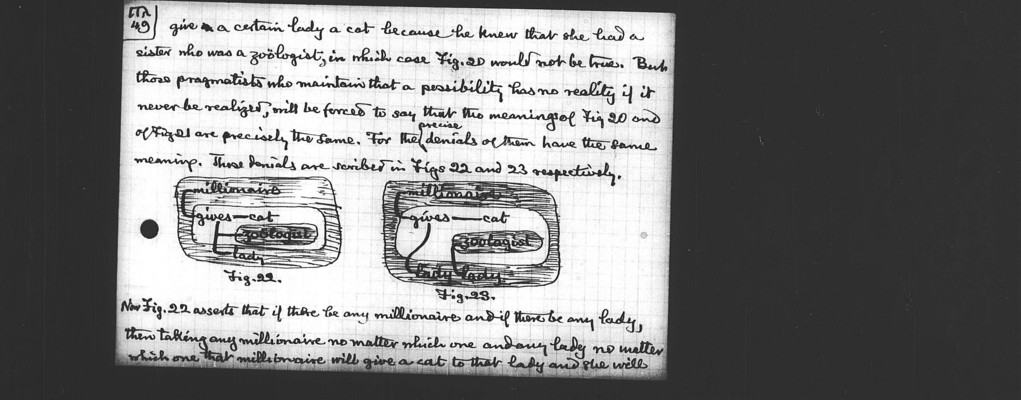 LTR
49
give a certain lady a cat because he knew that she had a
sister who was a zoölogist, in which case Fig. 20 would not be true. But
those pragmatists who maintain that a possibility has no reality if it
never be realized, will be forced to say that the meanings of Fig 20 and
precise
of Fig 21 are precisely the same. For the denials of them have the same
meaning. Those denials are scribed in Figs 22 and 23 respectively.
millionaire
gives cat
zoölogist
lady
Fig. 22.
millionaire
gives cat
zoologist
lady lady
Fig. 23.
Now Fig. 22 asserts that if there be any millionaire and if there be any lady,
then taking any millionaire no matter which one and any lady no matter
which one that millionaire will give a cat to that lady and she will